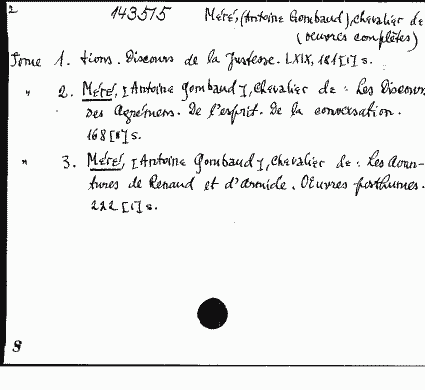 2 143515 Méré, (Antoine Gombaud), chevalier de
(oeuvres complètes)
Tome 1. tions. Discours de la Justesse. LXIX, 181[1] s.
" 2. Méré, [Antoine Gombaud], chevalier de: Les Discours
des Agrémens. De l'esprit. De la conversation.
168[8] s.
" 3. Méré, [Antoine Gombaud], chevalier de: Les Avan-
tures de Renaud et d'Armide. Oeuvres posthumes.
222 [1] s.
S